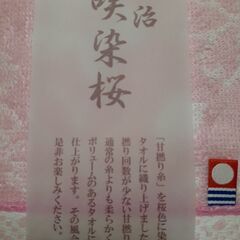 治
咲染桜
「甘撚り糸」を桜色に染
タオルに織り上げました
撚り回数が少ない甘撚り
通常の糸よりも柔らかく
ボリュームのあるタオルに
仕上がります。その風合
是非お楽しみください。